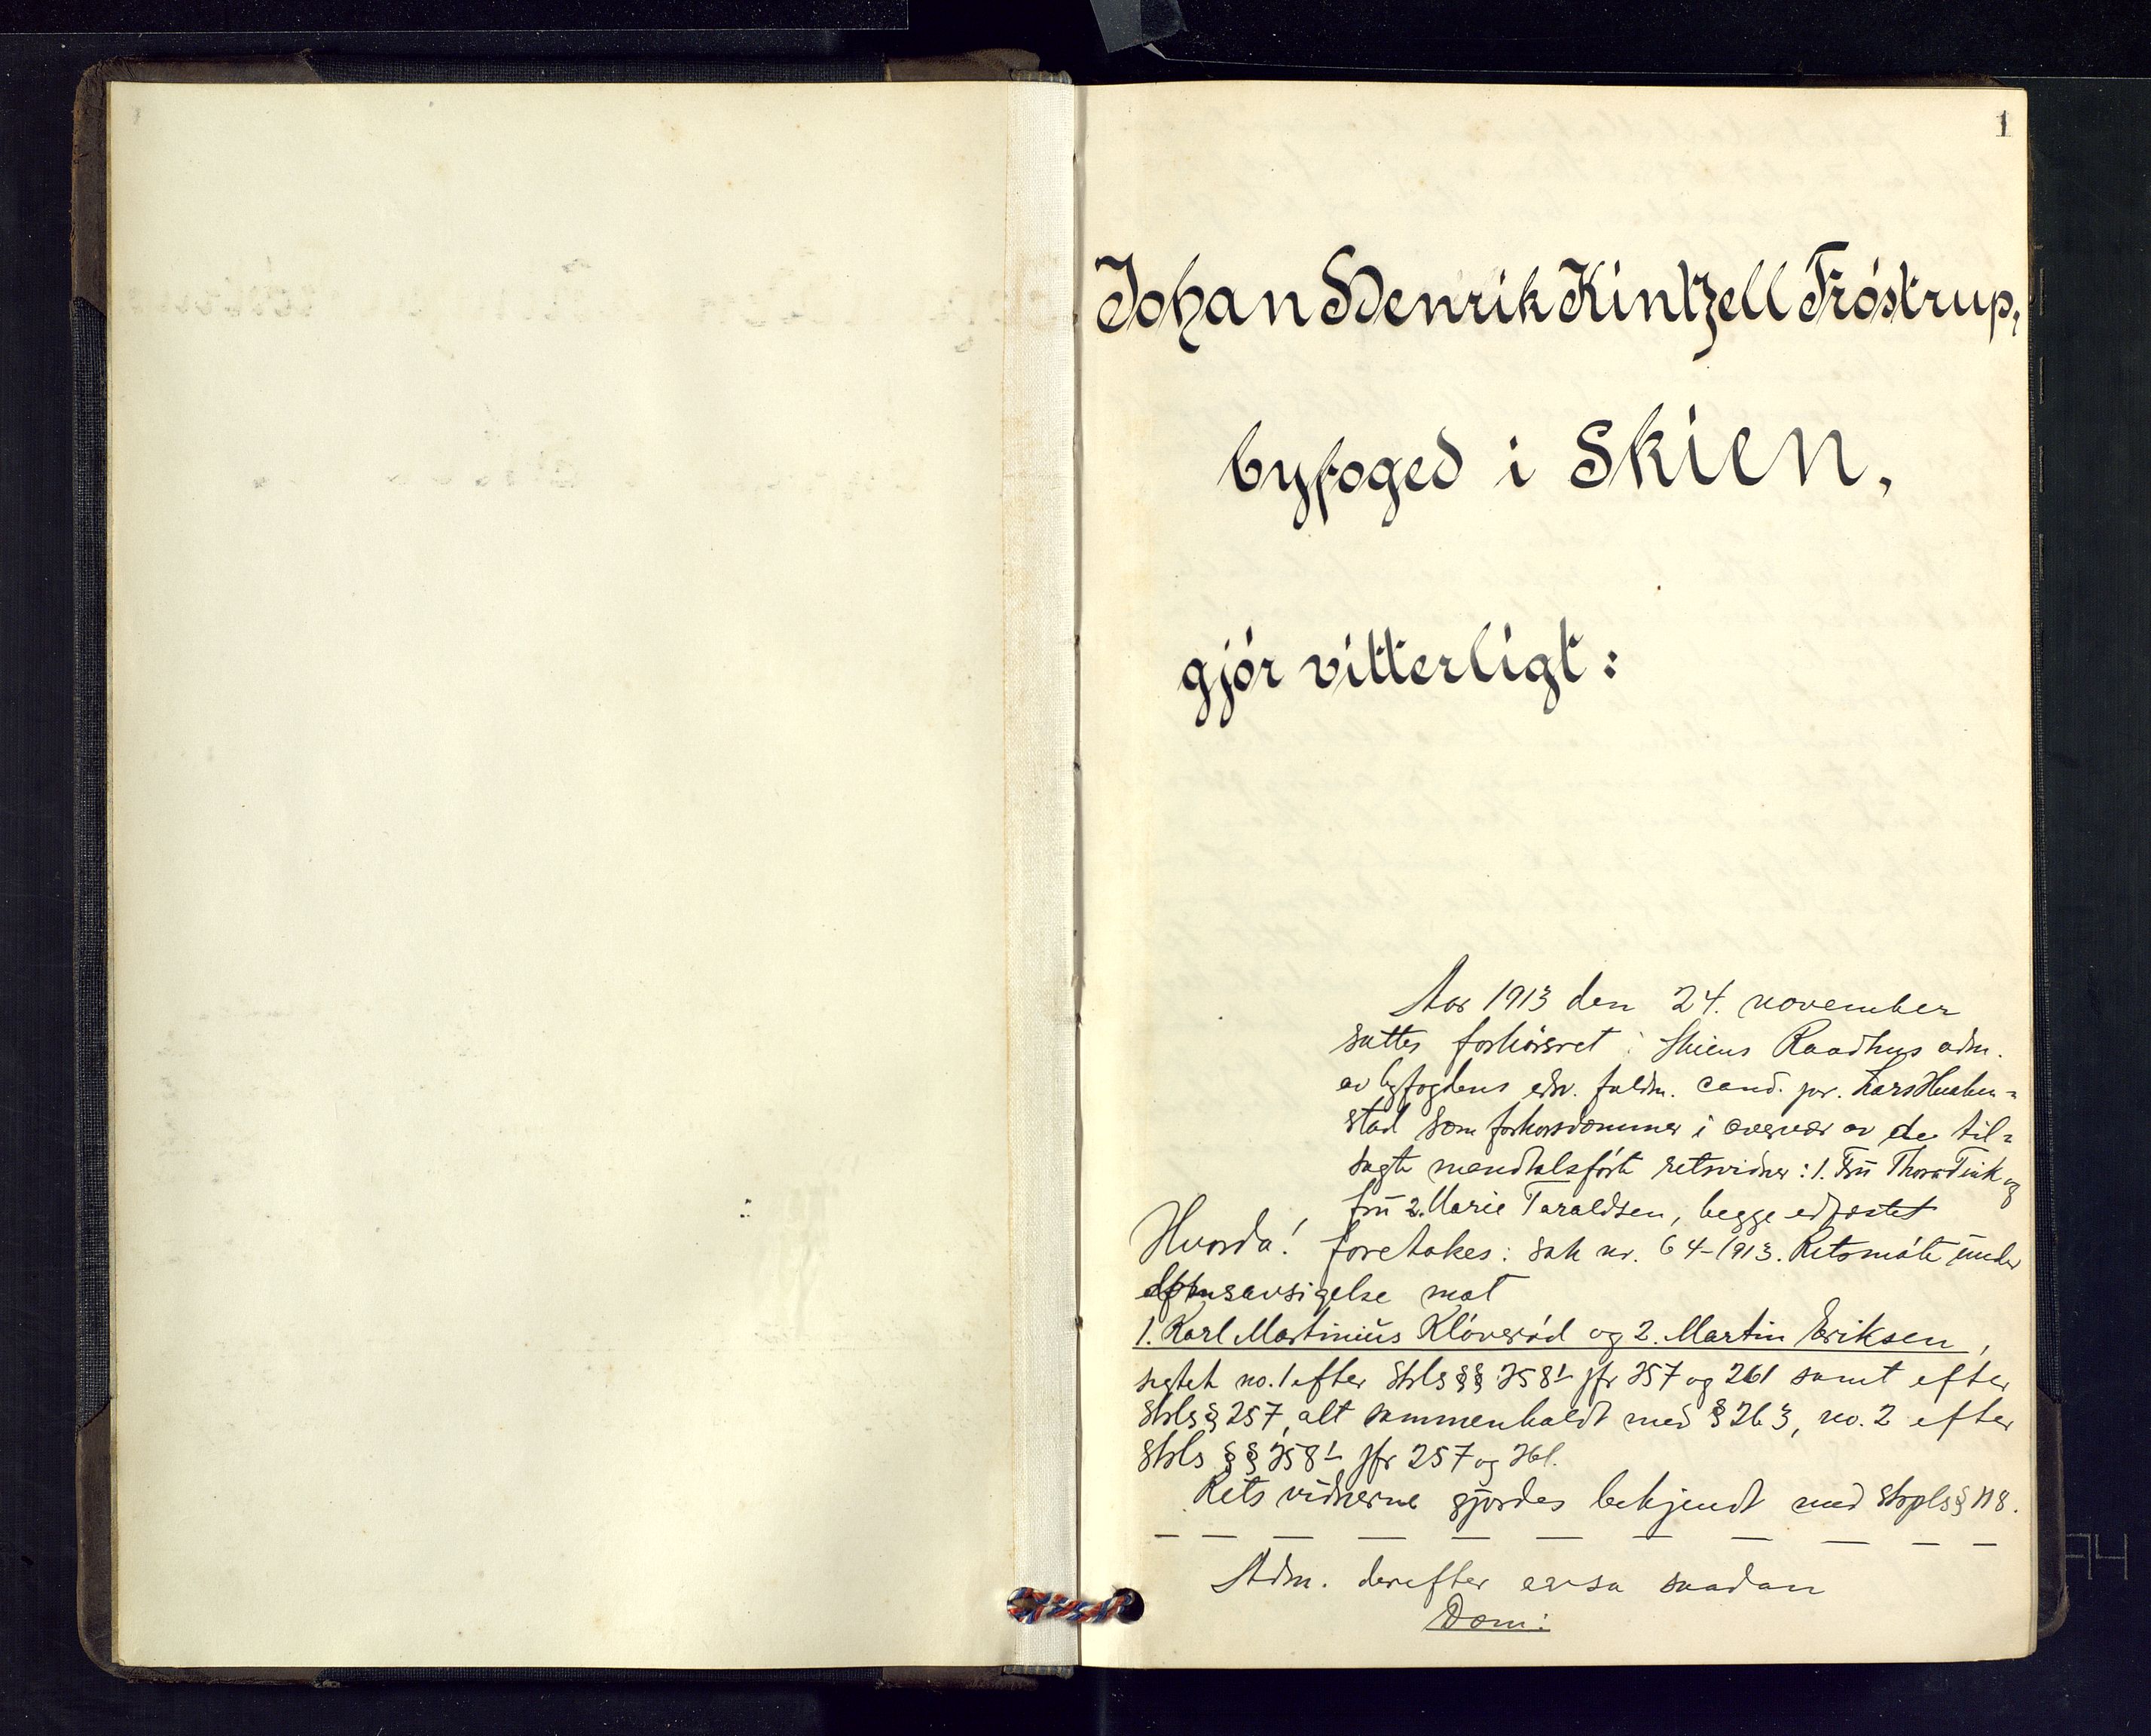 1
Johan Henrik Kintzell Fróstrup,
byfoged i Skien,
gjór vitterligt:
Aar 1913 den 24. november
sattes forhörsret i Skiens Raadhus adm.
av byfogdens edsv. fuldm. cand. jur. Lars
stad som forhørsdommer i overvær av de til-
sagte mandtalsförte retsvidner: 1. Frü Thora og
frü 2. Marie Taraldsen, begge edfæstet
Hvorda! foretakes: sak nr. 64-1913. Retsmöte ünder
avsigelse mot
1. Karl Martiniüs Klöveród og 2. Martin Eriksen,
sigtet no. 1 efter Strls §§ 258¹ jfr 257 og 261 samt efter
Strls § 257, alt sammenholdt med § 263, no. 2 efter
Strls §§ 258¹ jfr 257 og 261.
Retsvidnerne gjordes bekjendt med Strpls § 118.
Adm. derefter avsa saadan
Dom: